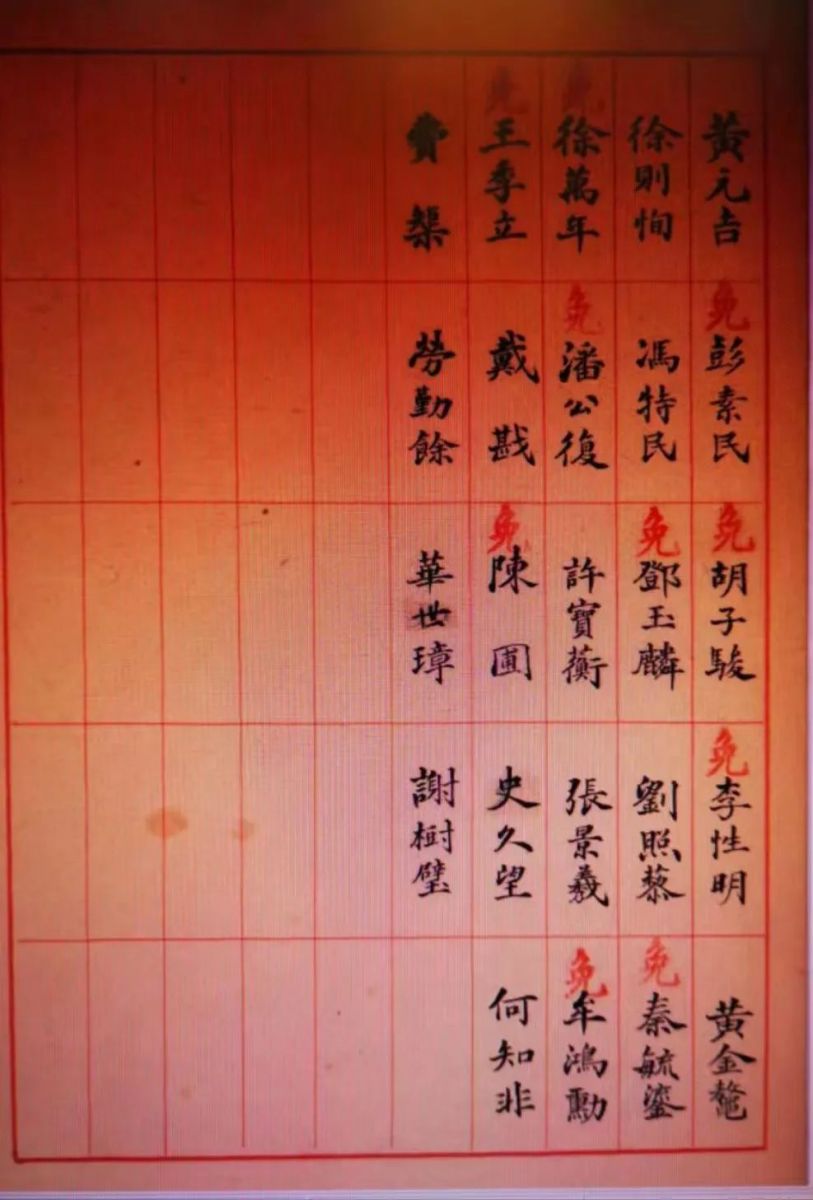 黃元吉
免彭素民
免胡子駿
免李性明
黃金鼇
徐則恂
馮特民
免鄧玉麟
劉照藜
免秦毓鎏
免徐萬年
免潘公復
許寶蘅
張景羲
免牟鴻勳
免王季立
戴戡
免陳圃
史久望
何知非
費榘
勞勤餘
華世璋
謝樹璧